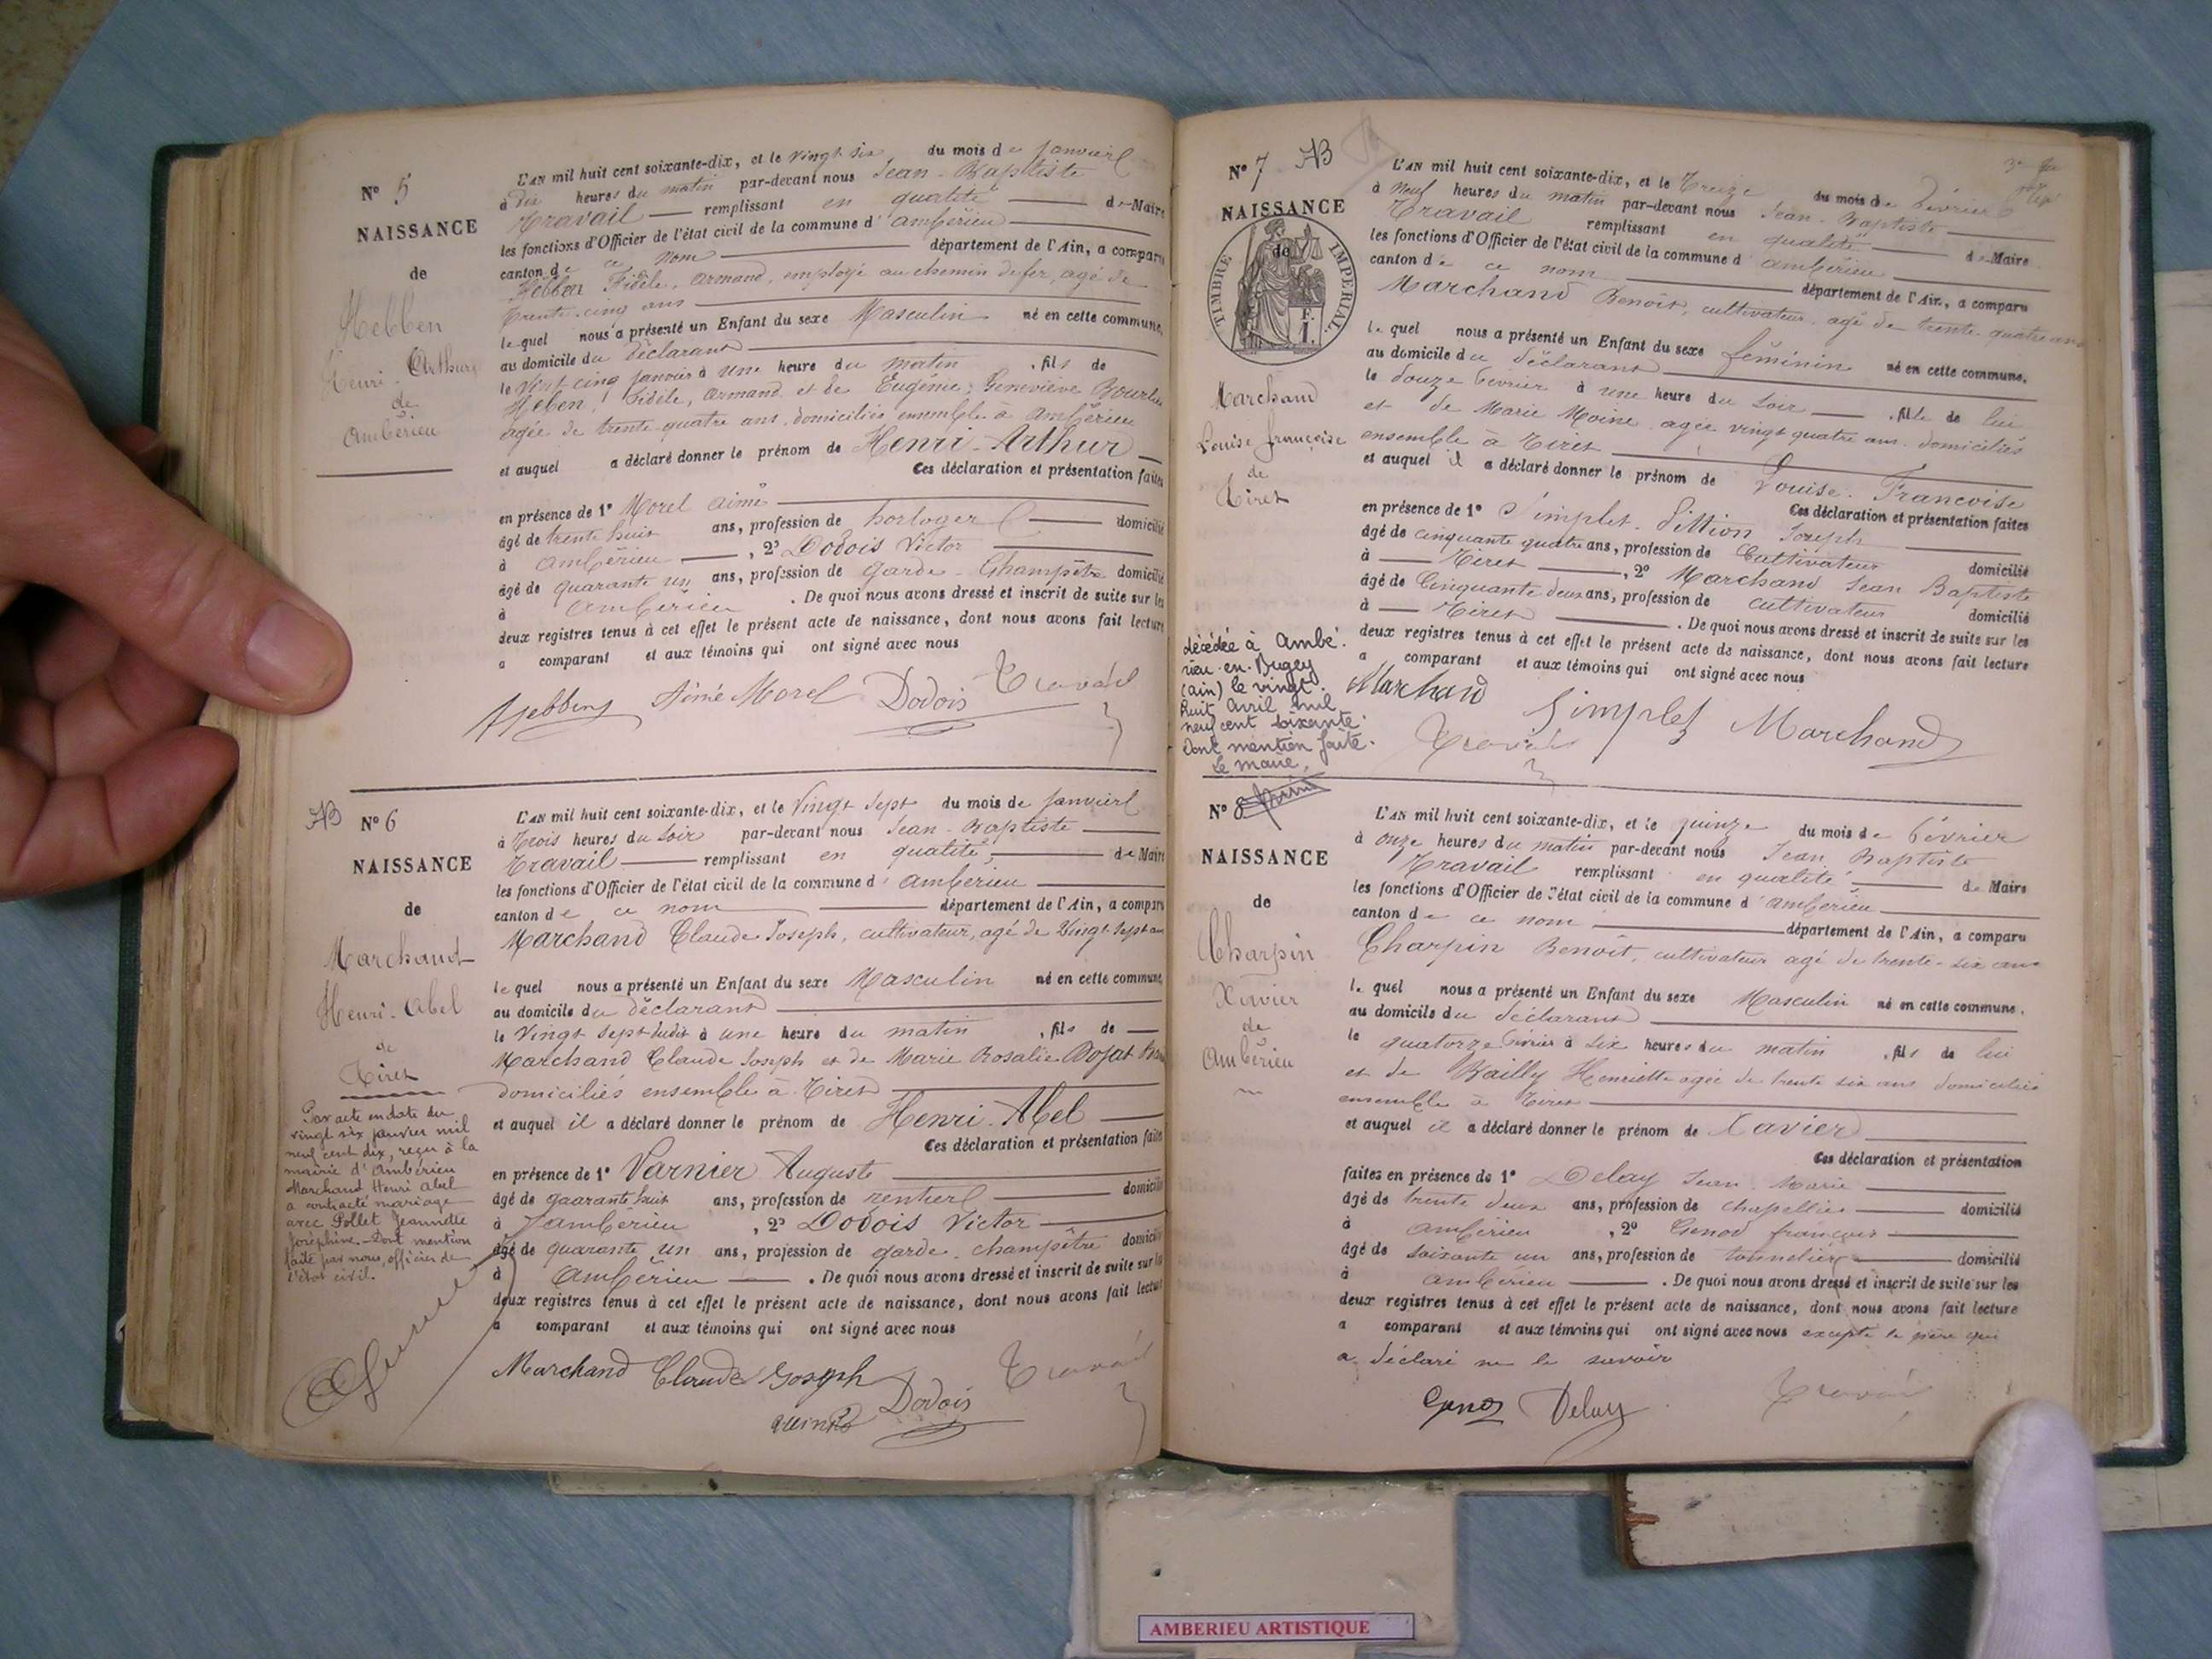 N° 5
NAISSANCE
de
Hebben
Henri-Arthur
de
Ambérieu
L'AN mil huit cent soixante-dix, et le vingt six du mois de janvier
à dix heures du matin par-devant nous Jean-Baptiste
Travail remplissant en qualité de Maire
les fonctions d'Officier de l'état civil de la commune d'Ambérieu
canton de ce nom département de l'Ain, a comparu
Hebben Fidèle, Armand, employé au chemin de fer, agé de
trente-cinq ans
lequel nous a présenté un Enfant du sexe Masculin né en cette commune,
au domicile du déclarant
le vint cinq janvier à une heure du matin, fils de
Heben, Fidèle, Armand et de Eugénie, Geneviève
agée de trente-quatre ans, domiciliés ensemble à Ambérieu
et auquel a déclaré donner le prénom de Henri-Arthur
Ces déclaration et présentation faites
en présence de 1° Morel Aimé
âgé de trente huit ans, profession de horloger domicilié
à Ambérieu, 2° Dodois Victor
âgé de quarante un ans, profession de garde-Champêtre domicilié
à Ambérieu. De quoi nous avons dressé et inscrit de suite sur les
deux registres tenus à cet effet le présent acte de naissance, dont nous avons fait lecture
a comparant et aux témoins qui ont signé avec nous
Hebben Aimé Morel Dodois Travail
AB N° 6
NAISSANCE
de
Marchand
Henri-Abel
de
Tiret
Par acte en date du
vingt six janvier mil
neuf cent dix, reçu à la
mairie d'Ambérieu
Marchand Henri Abel
a contracté mariage
avec Pollet Jeannette
Joséphine.-Dont mention
faite par nous, officier de
l'état civil.
L'AN mil huit cent soixante-dix, et le vingt sept du mois de janvier
à trois heures du soir par-devant nous Jean-Baptiste
Travail remplissant en qualité, de Maire
les fonctions d'Officier de l'état civil de la commune d'Ambérieu
canton de ce nom département de l'Ain, a comparu
Marchand Claude Joseph, cultivateur, agé de Vingt sept ans
lequel nous a présenté un Enfant du sexe Masculin né en cette commune,
au domicile du déclarant
le vingt sept dudit à une heure du matin, fils de
Marchand Claude Joseph et de Marie Rosalie Bojat
domiciliés ensemble à Tiret
et auquel il a déclaré donner le prénom de Henri-Abel
Ces déclaration et présentation faites
en présence de 1° Varnier Auguste
âgé de quarante huit ans, profession de rentier domicilié
à Ambérieu, 2° Dodois Victor
âgé de quarante un ans, profession de garde-champêtre domicilié
à Ambérieu. De quoi nous avons dressé et inscrit de suite sur les
deux registres tenus à cet effet le présent acte de naissance, dont nous avons fait lecture
a comparant et aux témoins qui ont signé avec nous
Marchand Claude Joseph Travail
Dodois
N° 7 AB
NAISSANCE
de
TIMBRE IMPERIAL.
Marchand
Louise françoise
de
Tiret
décédée à Ambé-
rieu-en-Bugey
(ain) le vingt-
huit Avril mil
neuf cent soixante.
Dont mention faite.
Le maire,
L'AN mil huit cent soixante-dix, et le treize du mois de février
à neuf heures du matin par-devant nous Jean-Baptiste
Travail remplissant en qualité de Maire
les fonctions d'Officier de l'état civil de la commune d'Ambérieu
canton de ce nom département de l'Ain, a comparu
Marchand Benoît, cultivateur, agé de trente-quatre ans
lequel nous a présenté un Enfant du sexe féminin né en cette commune,
au domicile du déclarant
le douze février à une heure du soir, fille de lui
et de Marie Moine agée vingt quatre ans domiciliés
ensemble à Tiret
et auquel il a déclaré donner le prénom de Louise-Françoise
Ces déclaration et présentation faites
en présence de 1° Simplet-Pittion Joseph
âgé de cinquante quatre ans, profession de Cultivateur domicilié
à Tiret, 2° Marchand Jean Baptiste
âgé de Cinquante deux ans, profession de cultivateur domicilié
à Tiret. De quoi nous avons dressé et inscrit de suite sur les
deux registres tenus à cet effet le présent acte de naissance, dont nous avons fait lecture
a comparant et aux témoins qui ont signé avec nous
Marchand Simplet Marchand
Travail
N° 8
NAISSANCE
de
Charpin
Xavier
de
Ambérieu
L'AN mil huit cent soixante-dix, et le quinze du mois de février
à onze heures du matin par-devant nous Jean Baptiste
Travail remplissant en qualité de Maire
les fonctions d'Officier de l'état civil de la commune d'Ambérieu
canton de ce nom département de l'Ain, a comparu
Charpin Benoît, cultivateur agé de trente-six ans
lequel nous a présenté un Enfant du sexe Masculin né en cette commune,
au domicile du déclarant
le quatorze février à six heures du matin, fils de lui
et de Bailly Henriette agée de trente six ans domiciliés
ensemble à Tiret
et auquel il a déclaré donner le prénom de Xavier
Ces déclaration et présentation
faites en présence de 1° Delay Jean-Marie
âgé de trente deux ans, profession de chapellier domicilié
à Ambérieu, 2° Genod françois
âgé de soixante un ans, profession de tonnelier domicilié
à Ambérieu. De quoi nous avons dressé et inscrit de suite sur les
deux registres tenus à cet effet le présent acte de naissance, dont nous avons fait lecture
a comparant et aux témoins qui ont signé avec nous excepté le père qui
a déclaré ne le savoir
Genod Delay Travail
AMBERIEU ARTISTIQUE